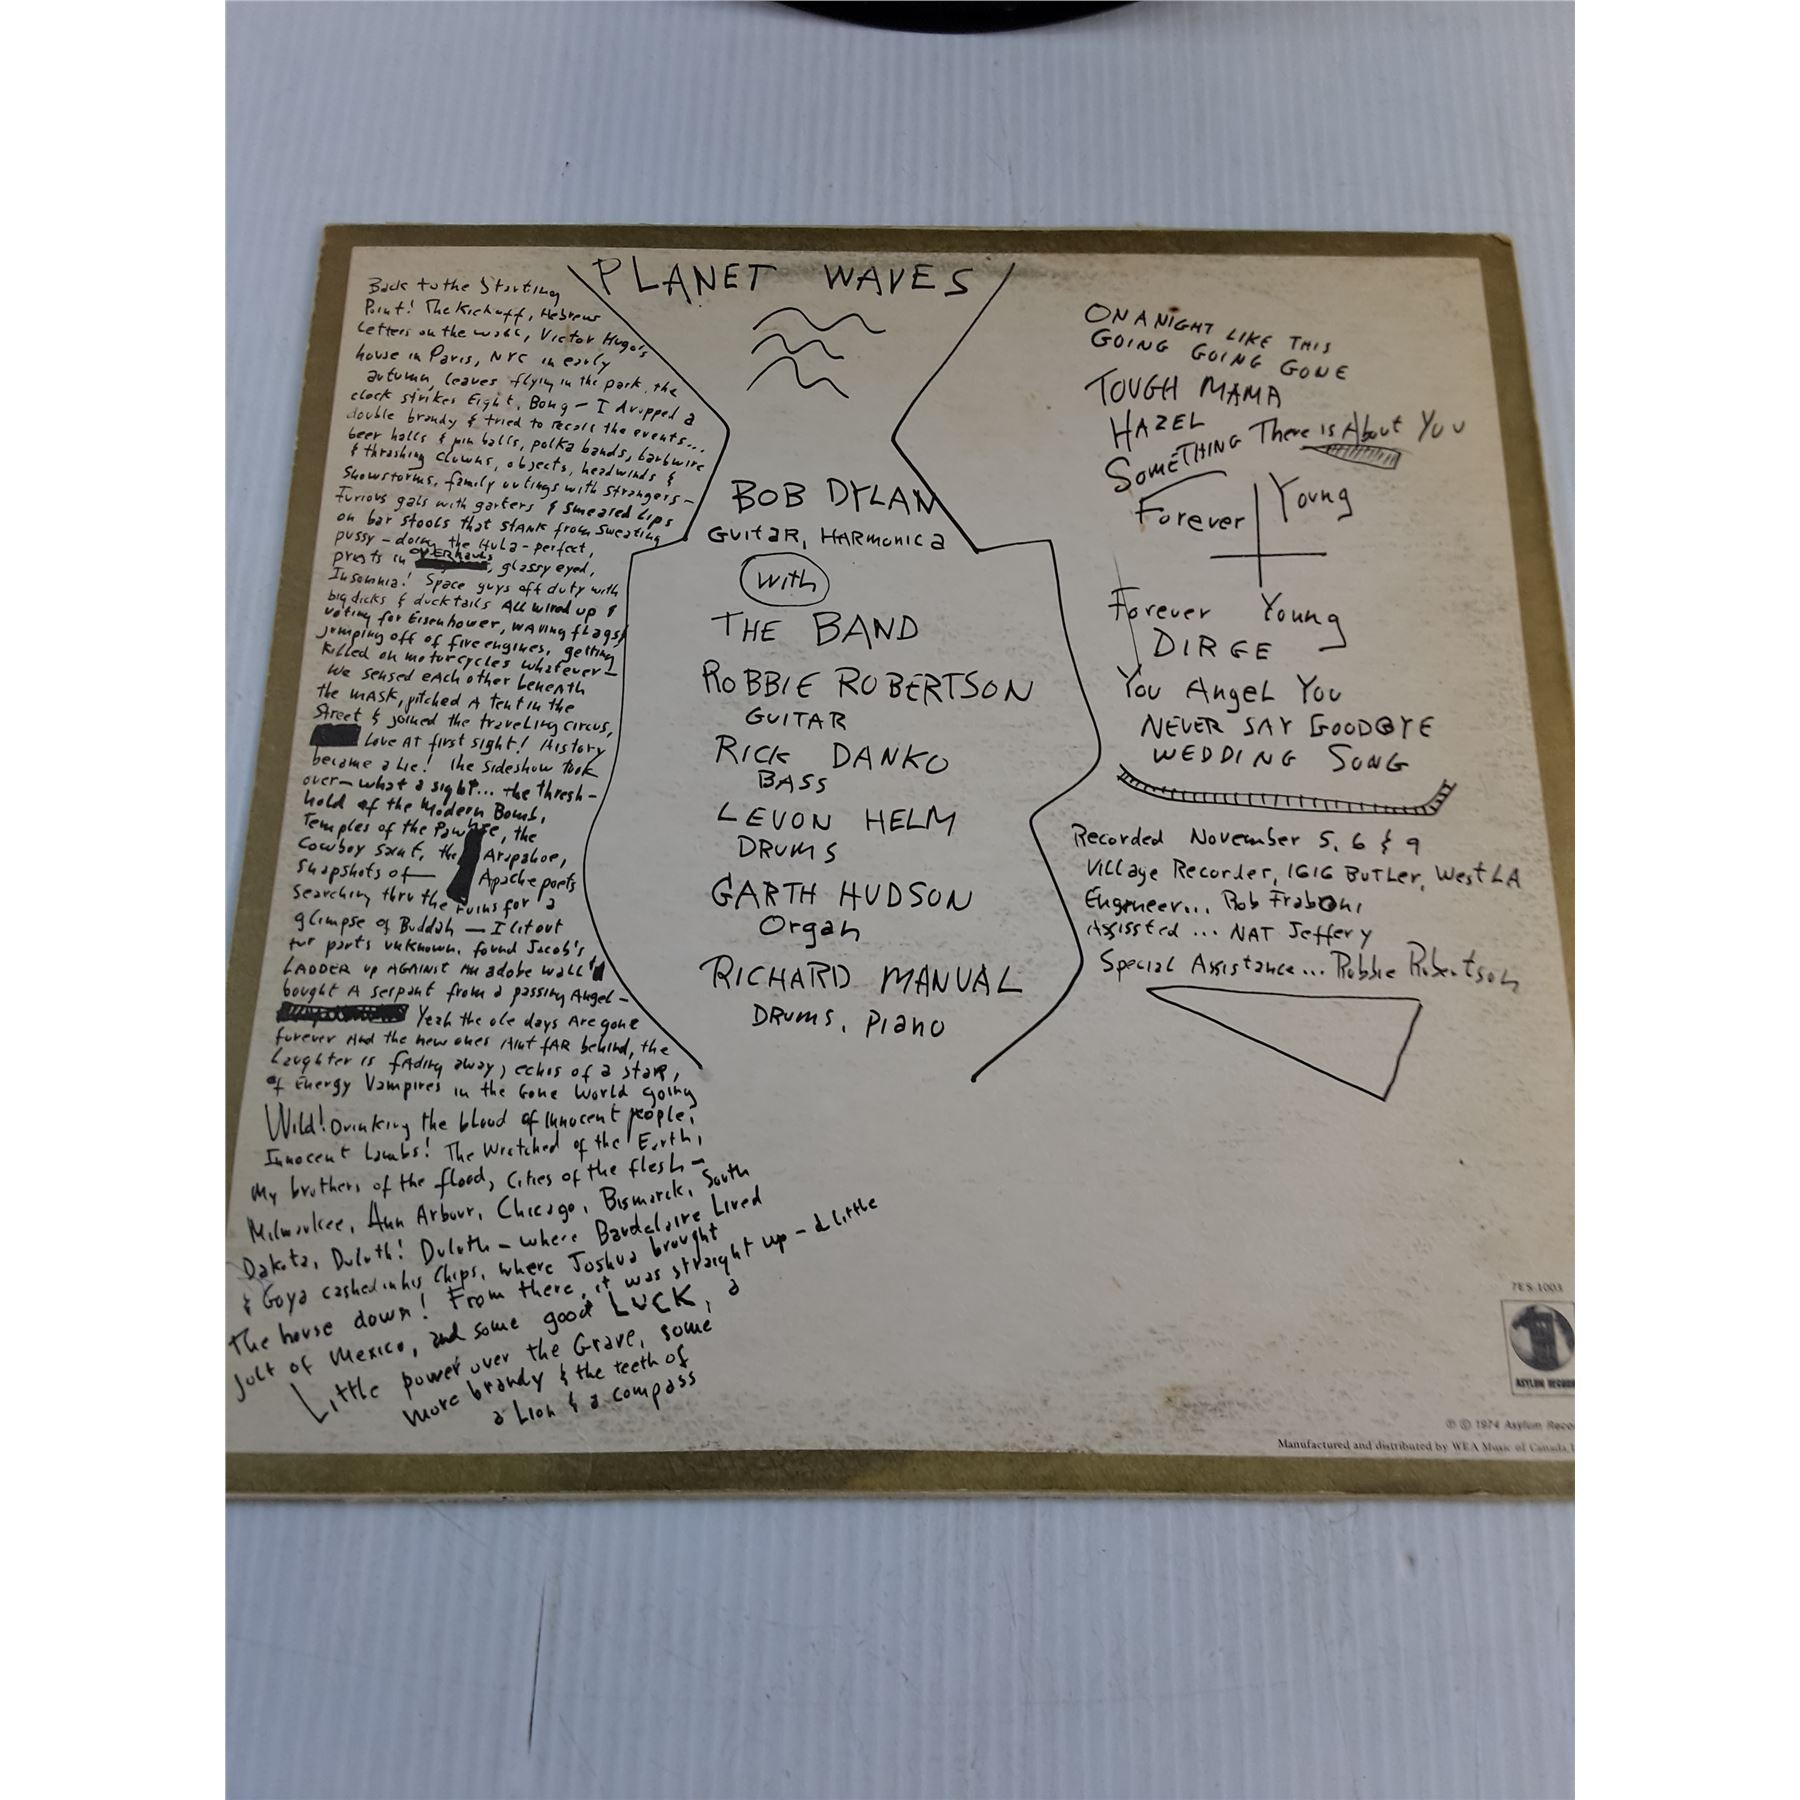 PLANET WAVES
Back to the Starting
Point! The Kickoff, Hebrew
Letters on the wall, Victor Hugo's
house in Paris, NYC in early
autumn, leaves flying in the park, the
clock strikes Eight, Bong — I dropped a
double brandy & tried to recall the events...
beer halls & pin balls, polka bands, barbwire
& thrashing clowns, objects, headwinds &
Snowstorms, family outings with strangers —
Furious gals with garters & Smeared Lips
on bar stools that STANK from sweating
pussy — doing the Hula — perfect,
priests in OVERhauls, glassy eyed,
Insomnia! Space guys off duty with
big dicks & ducktails All wired up &
voting for Eisenhower, WAVing flags,
jumping off of fire engines, getting
killed on motorcycles whatever —
We sensed each other beneath
the MASK, pitched A Tent in the
Street & joined the traveling circus,
Love AT first sight! History
became a Lie! The sideshow took
over — what a sight... the thresh-
hold of the Modern Bomb,
Temples of the Pawnee, the
Cowboy saint, the Arapahoe,
snapshots of — Apache poets
searching thru the ruins for a
glimpse of Buddah — I lit out
for parts unknown, found Jacob's
LADDER up AGAINST AN adobe wall &
bought A serpant from a passing Angel —
Yeah the ole days Are gone
forever And the new ones Aint fAR behind, the
Laughter is fAding away, echos of a star,
of Energy Vampires in the Gone World going
Wild! Drinking the blood of Innocent people,
Innocent Lambs! The Wretched of the Earth,
My brothers of the flood, Cities of the flesh —
Milwaukee, Ann Arbour, Chicago, Bismarck, South
Dakota, Duluth! Duluth — where Baudelaire Lived
& Goya cashed in his Chips, where Joshua brought
the house down! From there, it was straight up — a Little
jolt of Mexico, and some good LUCK, a
Little power over the Grave, some
more brandy & the teeth of
a Lion & a compass
BOB DYLAN
GUITAR, HARMONICA
with
THE BAND
ROBBIE ROBERTSON
GUITAR
RICK DANKO
BASS
LEVON HELM
DRUMS
GARTH HUDSON
Organ
RICHARD MANUAL
DRUMS, PIANO
ON A NIGHT LIKE THIS
GOING GOING GONE
TOUGH MAMA
HAZEL
SOMETHING There is About You
Forever Young
Forever Young
DIRGE
You Angel You
NEVER SAY GOODBYE
WEDDING SONG
Recorded November 5, 6 & 9
Village Recorder, 1616 BUTLER, West LA
Engineer... Rob Fraboni
Assissted ... NAT Jeffery
Special Assistance... Robbie Robertson
7ES-1003
ASYLUM RECORDS
℗ © 1974 Asylum Reco
Manufactured and distributed by WEA Music of Canada,